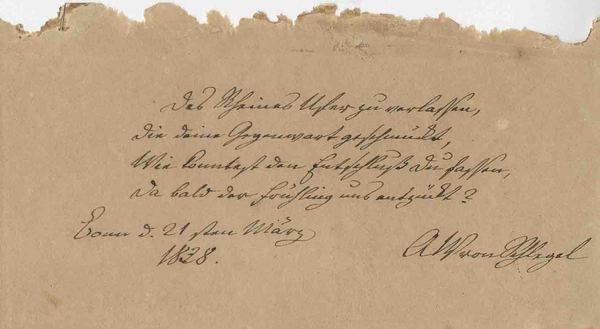 Des Rheines Ufer zu verlassen,
Die deine Gegenwart geschmückt,
Wie konntest den Entschluß du fassen,
Da bald der Frühling uns entzückt?
Bonn d. 21sten März
1828.
AW von Schlegel